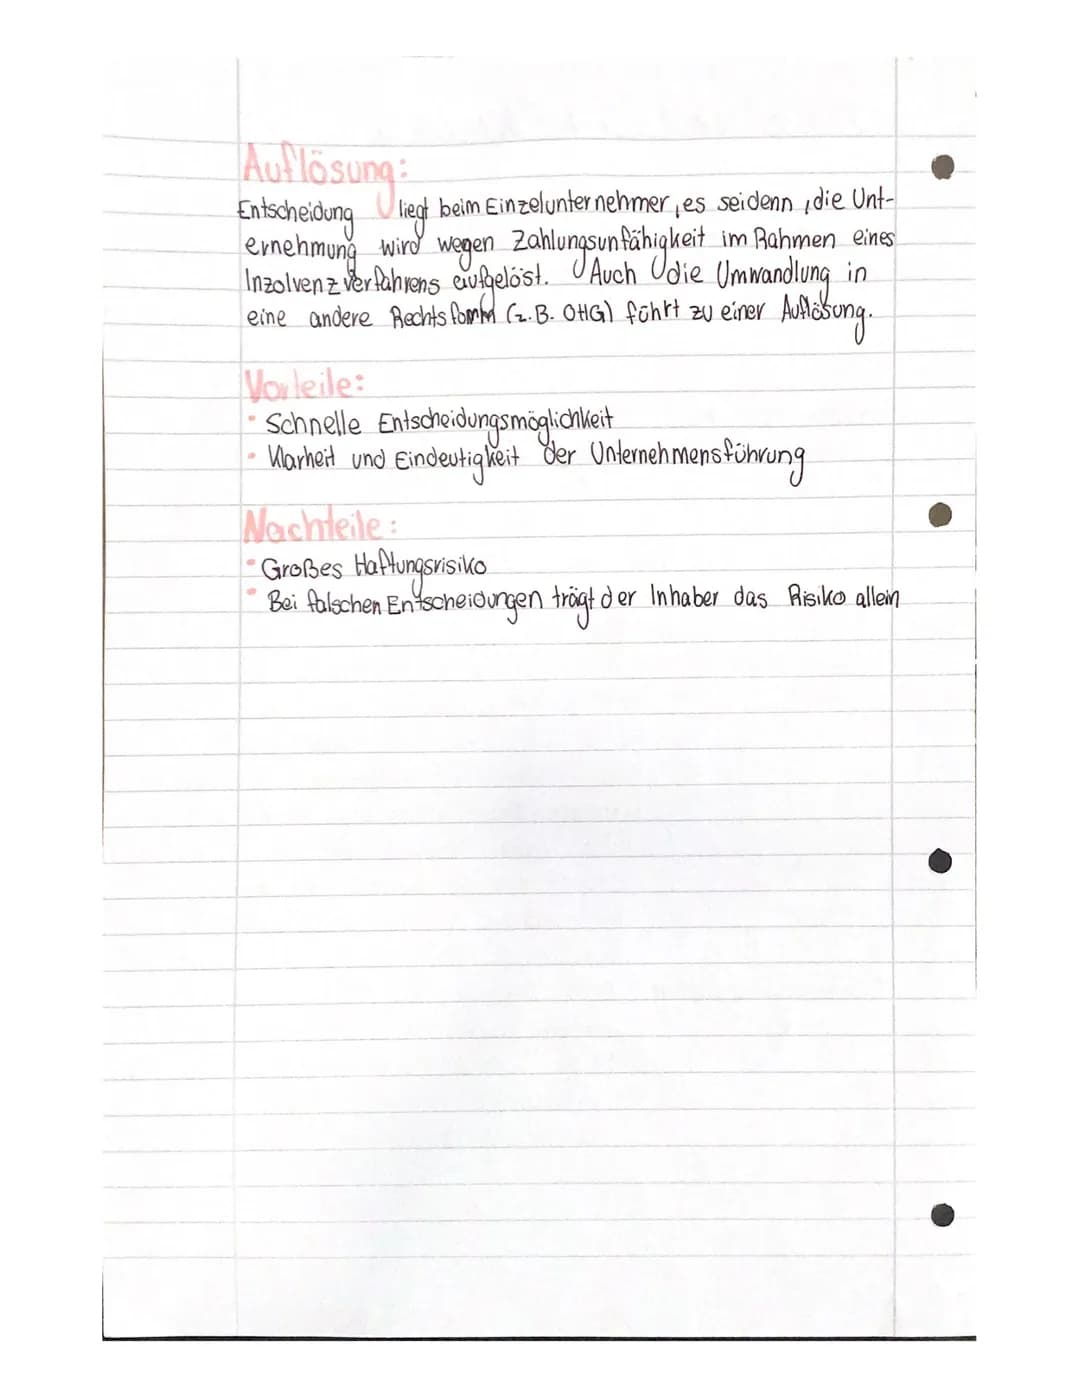 Auflösung:
Entscheidung liegt beim Einzelunternehmer, es seidenn, die Unt-
ernehmung wird wegen Zahlungsunfähigkeit im Rahmen eines
Inzolvenzverfahrens aufgelöst. Auch die Umwandlung in
eine andere Rechtsform (z.B. OHG) führt zu einer Auflösung.
Vorteile:
• Schnelle Entscheidungsmöglichkeit
• Klarheit und Eindeutigkeit der Unternehmensführung
Nachteile:
• Großes Haftungsrisiko
• Bei falschen Entscheidungen trägt der Inhaber das Risiko allein